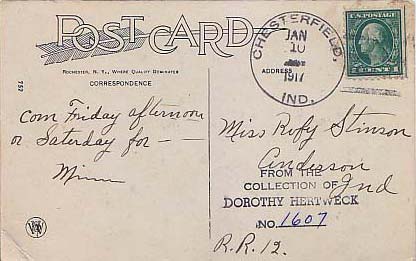 POST CARD
ROCHESTER, N. Y., WHERE QUALITY DOMINATES
CORRESPONDENCE
ADDRESS
CHESTERFIELD,
JAN
10
1917
IND.
U.S. POSTAGE
757
com Friday afternoon
or Saterday for — —
Miss Rofy Stinson
Anderson
Ind
FROM THE
COLLECTION OF
DOROTHY HERTWECK
NO. 1607
R.R. 12.